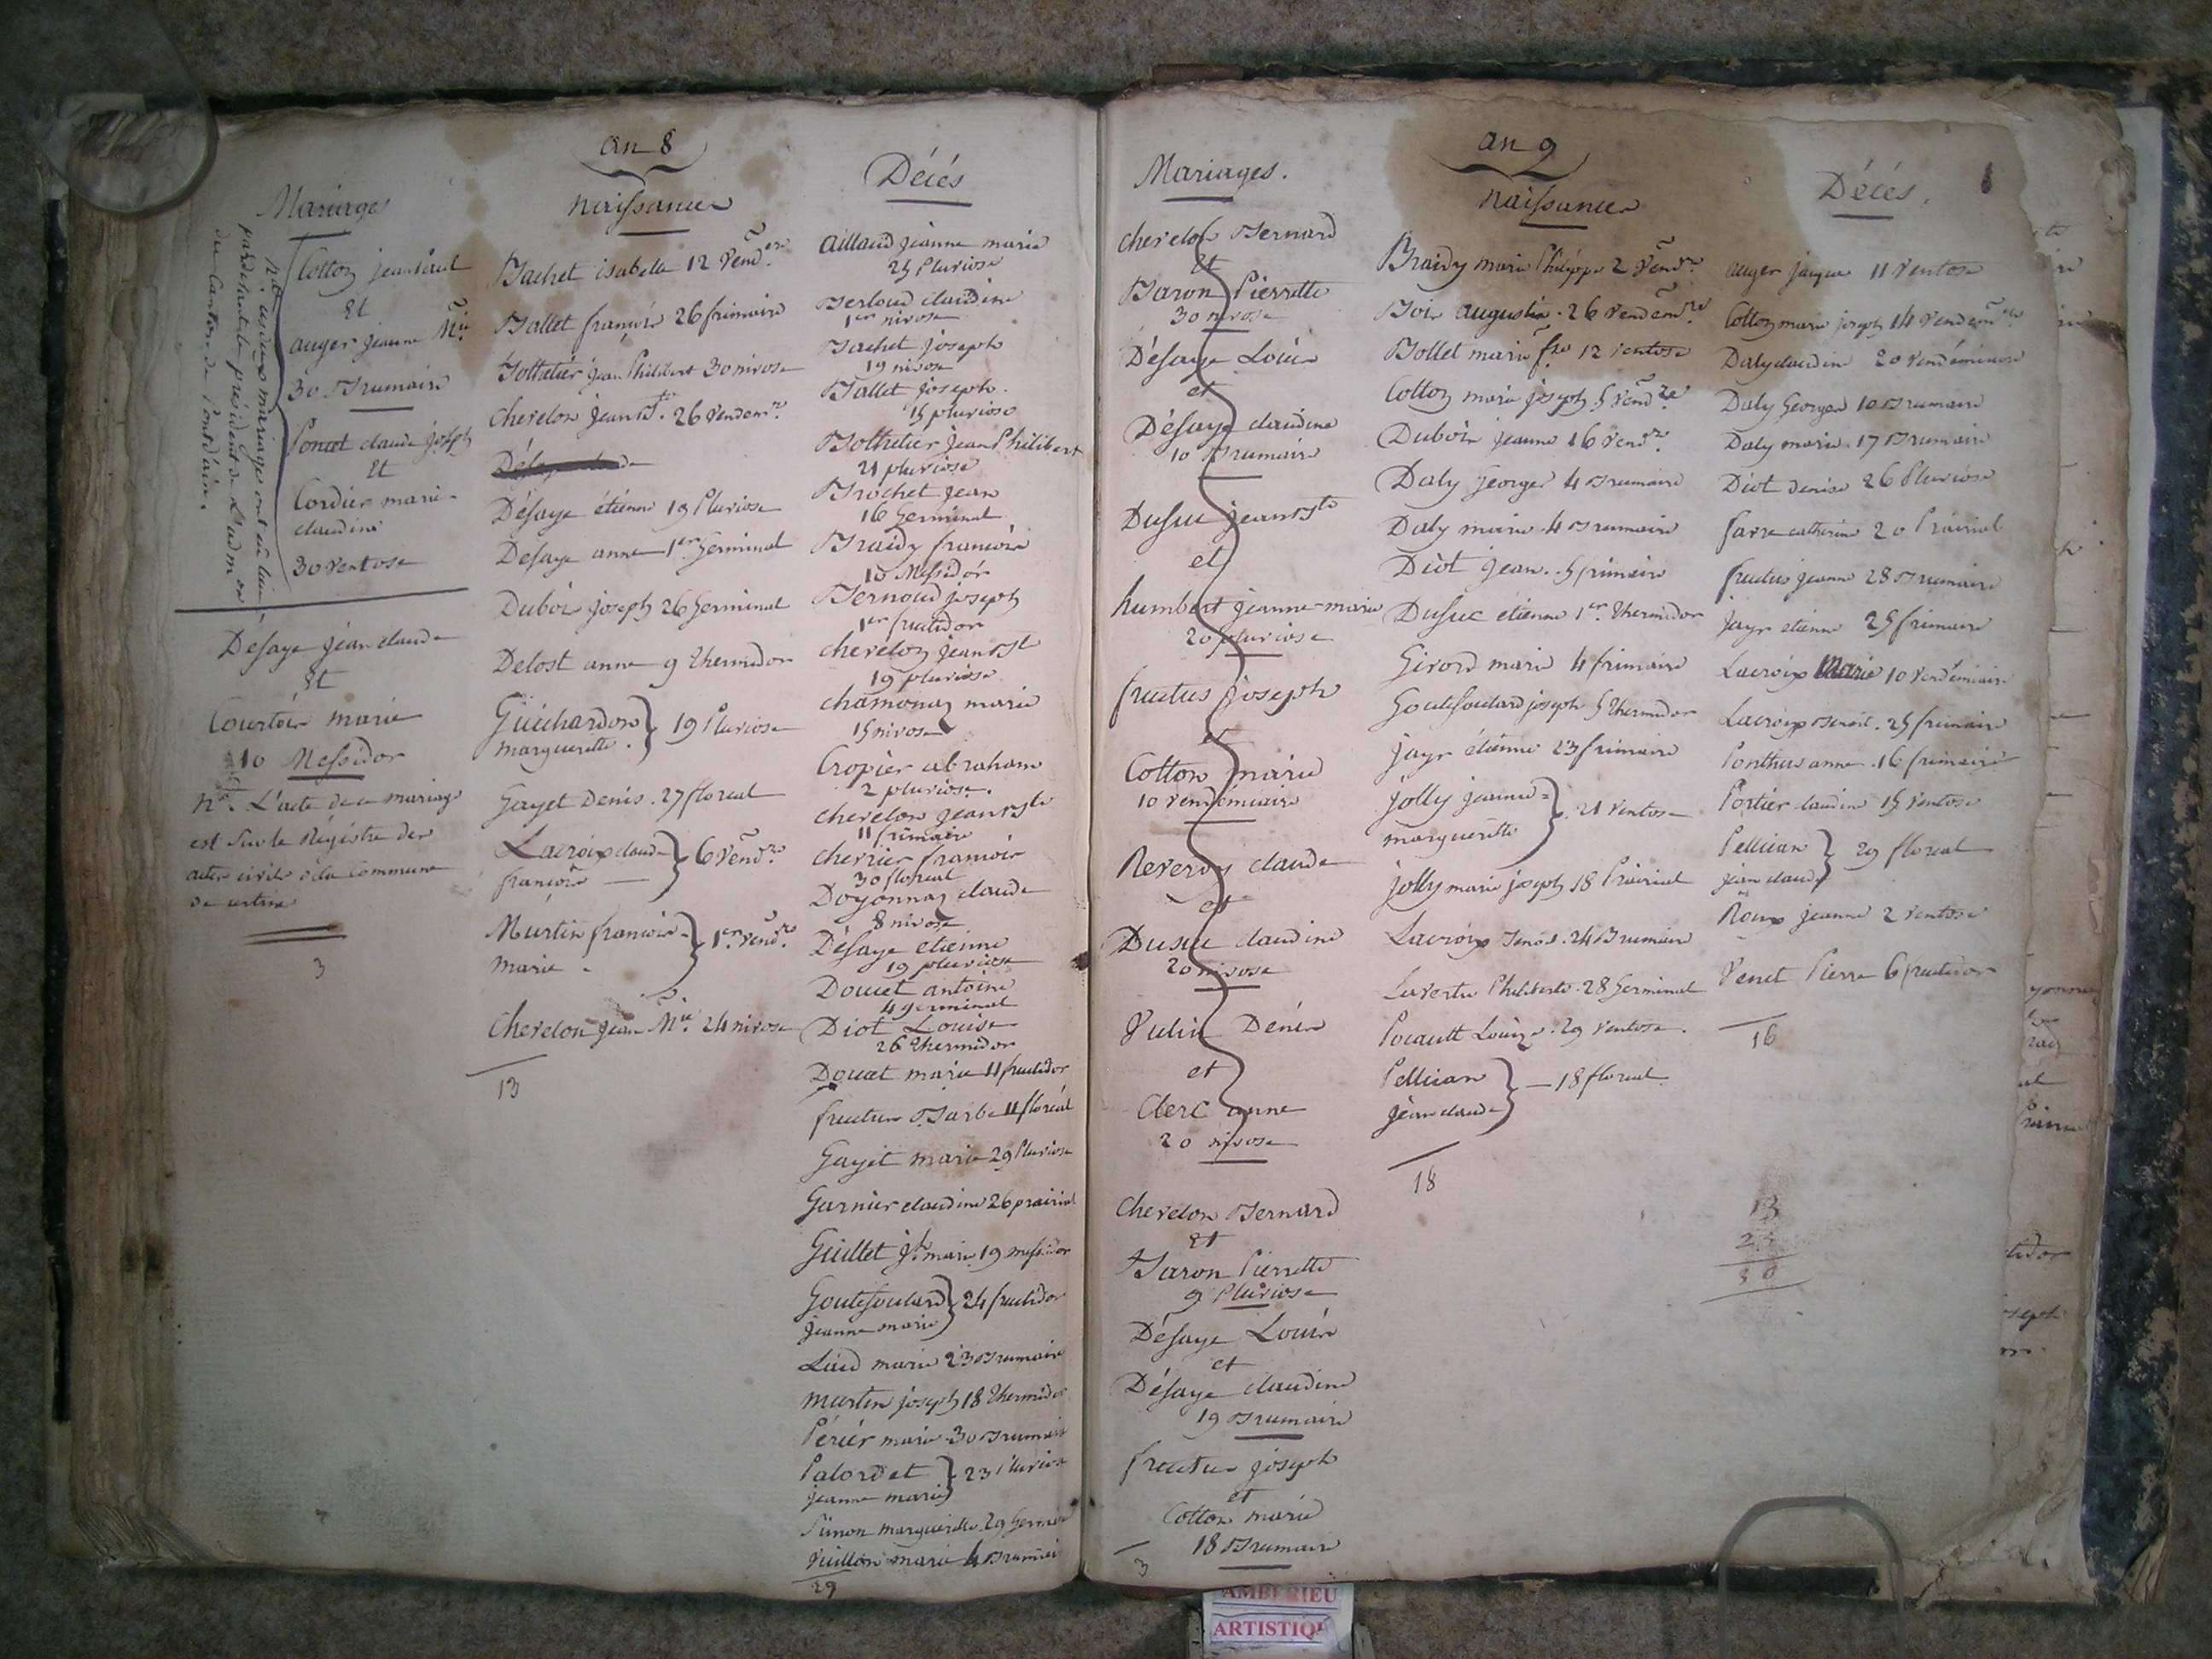 an 8
Mariages
Cotton jean
Et
auger jeanne Mie
30 Brumaire
Poncet claude joseph
Et
Cordier marie
claudine
30 ventose
Na. les deux mariages ont eu lieu
par devant le président de
du Canton de Pont d'ain.
Desaye jean claude
Et
Courtois marie
10 Messidor
Na. L'acte de ce mariage
est sur le Régistre des
actes civils de la Commune
de
3
naissances
Bachet isabelle 12 vendre
Ballet françois 26 frimaire
Bottatier jean Philibert 30 nivose
Cherelon jean Bte. 26 vendemre
Désaye étienne 19 Pluviose
Desaye anne 1er Germinal
Dubois joseph 26 Germinal
Delost anne 9 Thermidor
Guichardon
marguerite } 19 Pluviose
Gayet Denis. 27 floreal
Lacroix claude
françois } 6 vendre
Martin françois
marie } 1er vendre
Cherelon jean Mie 24 nivose
13
Décés
aillaud jeanne marie
25 Pluviose
Berloud claudine
1er nivose
Bachet joseph
19 nivose
Ballet joseph
15 pluviose
Bottatier jean Philibert
21 pluviose
Brochet jean
16 Germinal
Braidy françois
10 Messidor
Bernoud joseph
1er fructidor
cherelon jean Bte
19 pluviose
chamonay marie
15 nivose
Cropier abraham
2 pluviose.
cherelon jean Bte
11 frimaire
cherrier françois
30 floreal
Doyonnay claude
8 nivose
Désaye etienne
19 pluviose
Doucet antoine
4 germinal
Diot Louise
26 Thermidor
Doucet marie 11 fructidor
fructus Barbe 11 floréal
Gayet marie 29 Pluviose
Garnier claudine 26 prairial
Guillet jh marie 19 messidor
Goutefoulard
jeanne marie } 24 fructidor
Laid marie 23 Brumaire
martin joseph 18 Thermidor
Périer marie 30 Brumaire
Palordet
jeanne marie } 23 Pluviose
Simon marguerite 29 Germinal
Vuillon marie 4 Brumaire
29
an 9
Mariages.
Cherelon Bernard
Et
Baron Pierrette
30 nivose
Désaye Louis
et
Désaye claudine
10 Brumaire
Dusuc jean Bte
et
humbert jeanne-marie
20 pluviose
fructus joseph
et
Cotton marie
10 vendémiaire
Reveroy claude
et
Dusuc claudine
20 nivose
Vulin Dénis
et
Clerc anne
20 nivose
Cherelon Bernard
Et
Baron Pierrette
9 Pluviose
Désaye Louis
et
Désaye claudine
19 Brumaire
fructus joseph
et
Cotton marie
18 Brumaire
3
naissances
Braidy marie Philippe 2 vendre
Bois augustin. 26 vendemre
Bollet marie fse 12 ventose
Cotton marie joseph 5 vendre
Dubois jeanne 16 vendre
Daly George 4 Brumaire
Daly marie 4 Brumaire
Diot jean. 5 frimaire
Dusuc etienne 1er Thermidor
Girord marie 4 frimaire
Goutefoulard joseph 5 Thermidor
jayr étienne 23 frimaire
jolly jeanne
marguerite } 21 ventose
jolly marie joseph 18 Prairial
Lacroix Benoit. 24 Brumaire
Laverte Philiberte. 28 Germinal
Pocault Louise. 29 ventose.
Pellician
jean claude } 18 floreal
18
Décés.
auger jacque 11 ventose
Cotton marie joseph 14 vendemre
Daly claudine 20 vendémiaire
Daly George 10 Brumaire
Daly marie. 17 Brumaire
Diot denise 26 Pluviose
farre catherine 20 Prairial
fructus jeanne 28 Brumaire
jayr etienne 25 frimaire
Lacroix Marie 10 vendémiaire
Lacroix Benoit. 25 frimaire
Ponthus anne. 16 frimaire
Portier claudine 15 ventose
Pellician
jean claude } 29 floreal
Roux jeanne 2 ventose
Venet Pierre 6 fructidor
16
AMBERIEU
ARTISTIQU